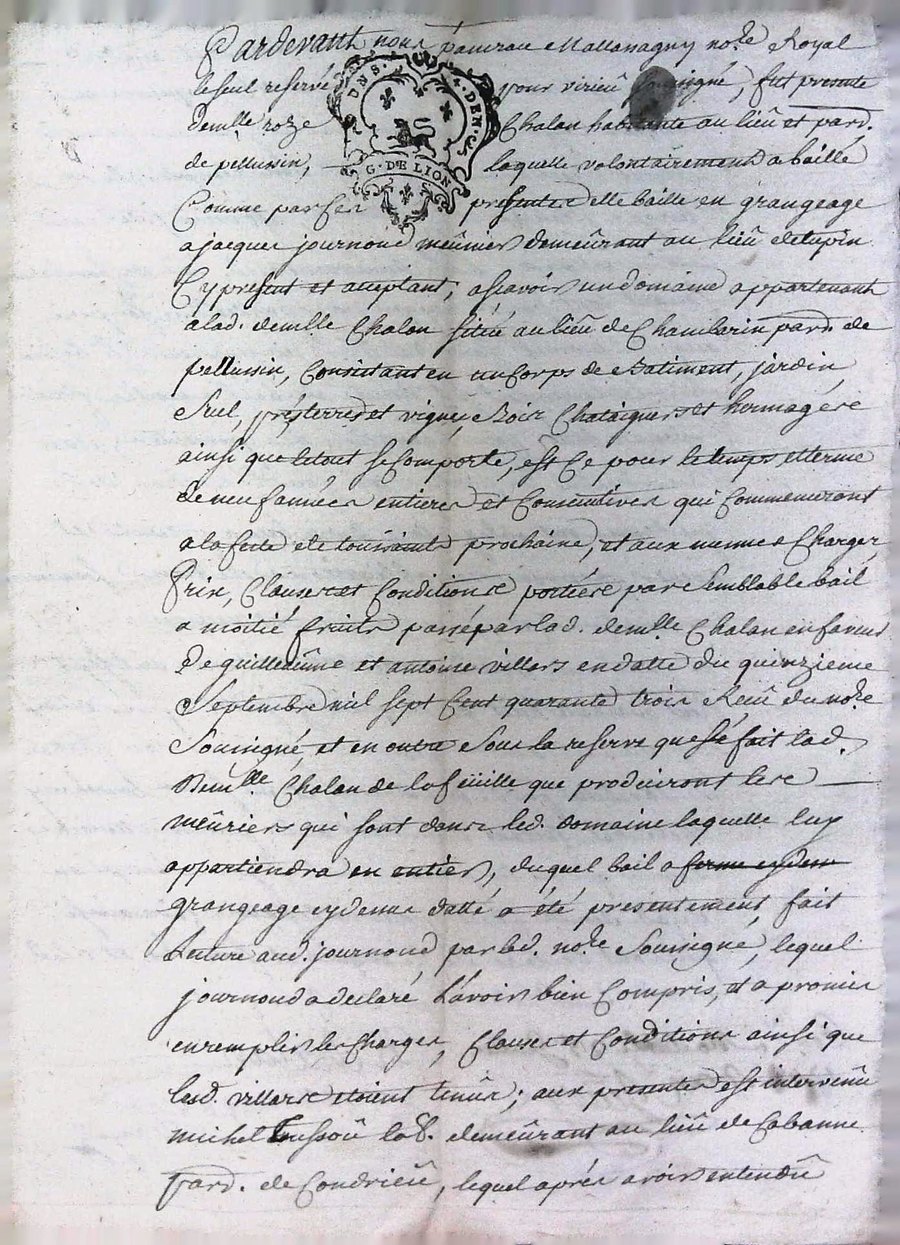 Pardevant nous panerau Mallanagny no.re Royal
le seul reservé pour virieu soussigné, fut presente
demlle roze Chalan habitante au lieû et parr.
de pellussin, laquelle volontairement a baillé
Comme par ces presentes elle baille en grangeage
a jacques journoud meûnier demeûrant au lieû de lupin
Cy present et aceptant, ascavoir un domaine appartenant
a lad. demlle Chalon sitûé au lieû de Chambarin parr. de
pellussin, Consistant en un Corps de Batiment, jardin,
Suel, prés terres et vignes, Boix Chataigners et hermages
ainsi que le tout se Comporte, est Ce pour le temps et terme
de neuf années entieres et Consecutives qui Commenceront
a la feste de toussaint prochaine, et aux mesmes Charges,
Prix, Clauses et Conditions portées par semblable bail
a moitié fruits passé par lad. demlle Chalan en faveur
De guilleaûme et antoine villars en datte du quinzieme
Septembre mil sept Cent quarante trois Reçeû du no.re
Soussigné, et en outre sous la reserve que se fait lad.
Demlle Chalan de la feüille que produiront les
meûriers qui sont dans led. domaine laquelle luy
appartiendra en entier, duquel bail a ferme cy dem
grangeage cydevant datté a été presentement fait
Lecture aud. journoud par led. no.re Soussigné, lequel
journoud a declaré L'avoir bien Compris, et a promis
en remplir les Charges, Clauses et Conditions ainsi que
lesd. villars etoient tenûs; aux presentes est intervenû
michel lab. demeûrant au lieû de Cabanne
parr. de Condrieû, lequel aprés avoir entendû
DNS.
4. DEN.
G. DE LION